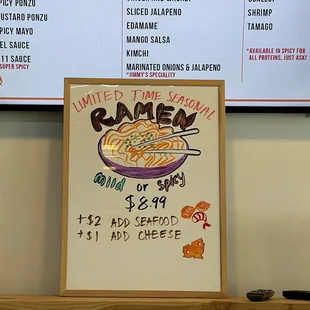 PICY PONZU
USTARD PONZU
PICY MAYO
EL SAUCE
11 SAUCE
SUPER SPICY
SLICED JALAPENO
EDAMAME
MANGO SALSA
KIMCHI
MARINATED ONIONS & JALAPENO
*JIMMY'S SPECIALITY
SHRIMP
TAMAGO
*AVAILABLE IN SPICY FOR
ALL PROTEINS, JUST ASK!
LIMITED TIME SEASONAL
RAMEN
mild or spicy
$8.99
+$2 ADD SEAFOOD
+$1 ADD CHEESE